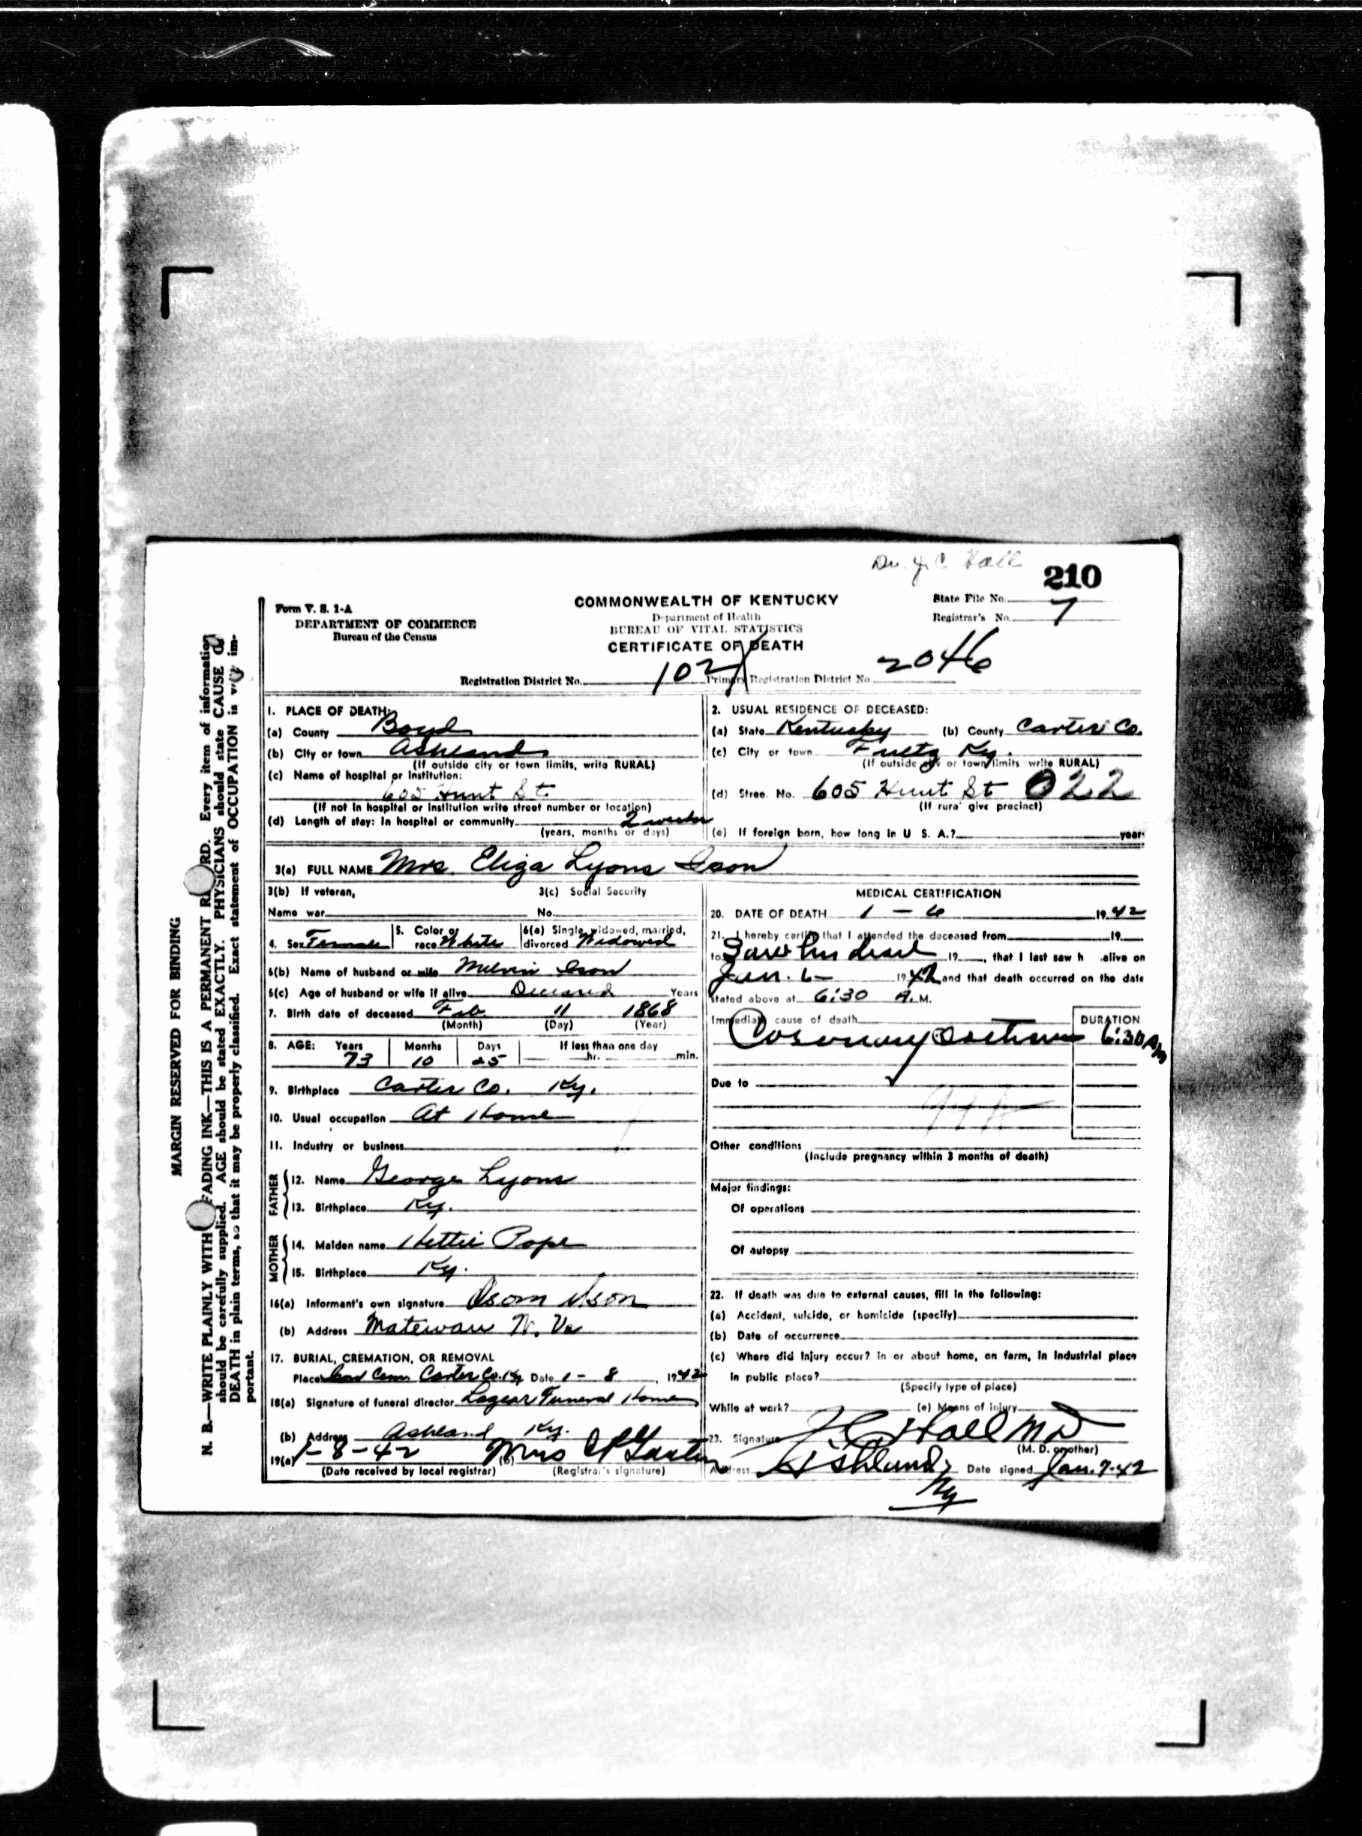 Dr. J. C. Hall
210
Form V. S. 1-A
DEPARTMENT OF COMMERCE
Bureau of the Census
COMMONWEALTH OF KENTUCKY
Department of Health
BUREAU OF VITAL STATISTICS
CERTIFICATE OF DEATH
State File No.
Registrar's No. 7
Registration District No. 102 Primary Registration District No. 2046
MARGIN RESERVED FOR BINDING
N. B.—WRITE PLAINLY WITH FADING INK—THIS IS A PERMANENT RD. Every item of information
should be carefully supplied. AGE should be stated EXACTLY. PHYSICIANS should state CAUSE
DEATH in plain terms, so that it may be properly classified. Exact statement of OCCUPATION is very im-
portant.
1. PLACE OF DEATH:
(a) County Boyd
(b) City or town Ashland
(If outside city or town limits, write RURAL)
(c) Name of hospital or institution:
605 Hunt St.
(If not in hospital or institution write street number or location)
(d) Length of stay: In hospital or community 2 weeks
(years, months or days)
2. USUAL RESIDENCE OF DECEASED:
(a) State Kentucky (b) County Carter Co.
(c) City or town Ky.
(If outside city or town limits write RURAL)
(d) Stree. No. 605 Hunt St 022
(If rura' give precinct)
(e) If foreign born, how long in U S. A.? year
3(a) FULL NAME Mrs. Eliza Lyons Ison
3(b) If veteran,
Name war
3(c) Social Security
No.
4. Sex Female
5. Color or
race White
6(a) Single, widowed, married,
divorced Widowed
6(b) Name of husband or wife Melvin Ison
6(c) Age of husband or wife if alive Deceased Years
7. Birth date of deceased Feb 11 1868
(Month) (Day) (Year)
8. AGE: Years Months Days If less than one day
73 10 25 hr. min.
9. Birthplace Carter Co. Ky.
10. Usual occupation At Home
11. Industry or business
FATHER
12. Name George Lyons
13. Birthplace Ky.
MOTHER
14. Maiden name Hettie Pope
15. Birthplace Ky.
16(a) Informant's own signature Ison
(b) Address Matewan W. Va
17. BURIAL, CREMATION, OR REMOVAL
Place Cem Carter Co. Ky Date 1 - 8, 1942
18(a) Signature of funeral director Lazear Funeral Home
(b) Address Ashland Ky.
19(a) 1-8-42 (b) Mrs
(Date received by local registrar) (Registrar's signature)
MEDICAL CERTIFICATION
20. DATE OF DEATH 1 - 6 1942
21. I hereby certify that I attended the deceased from 19
to Saw her dead 19, that I last saw h alive on
Jan. 6 1942 and that death occurred on the date
stated above at 6:30 A. M.
Immediate cause of death DURATION
Coronary 6:30 AM
Due to
Other conditions
(Include pregnancy within 3 months of death)
Major findings:
Of operations
Of autopsy
22. If death was due to external causes, fill in the following:
(a) Accident, suicide, or homicide (specify)
(b) Date of occurrence
(c) Where did injury occur? In or about home, on farm, in industrial place
In public place?
(Specify type of place)
While at work? (e) Means of injury
23. Signature J C Hall MD
(M. D. or other)
Address Ashland, Date signed Jan. 7-42
Ky